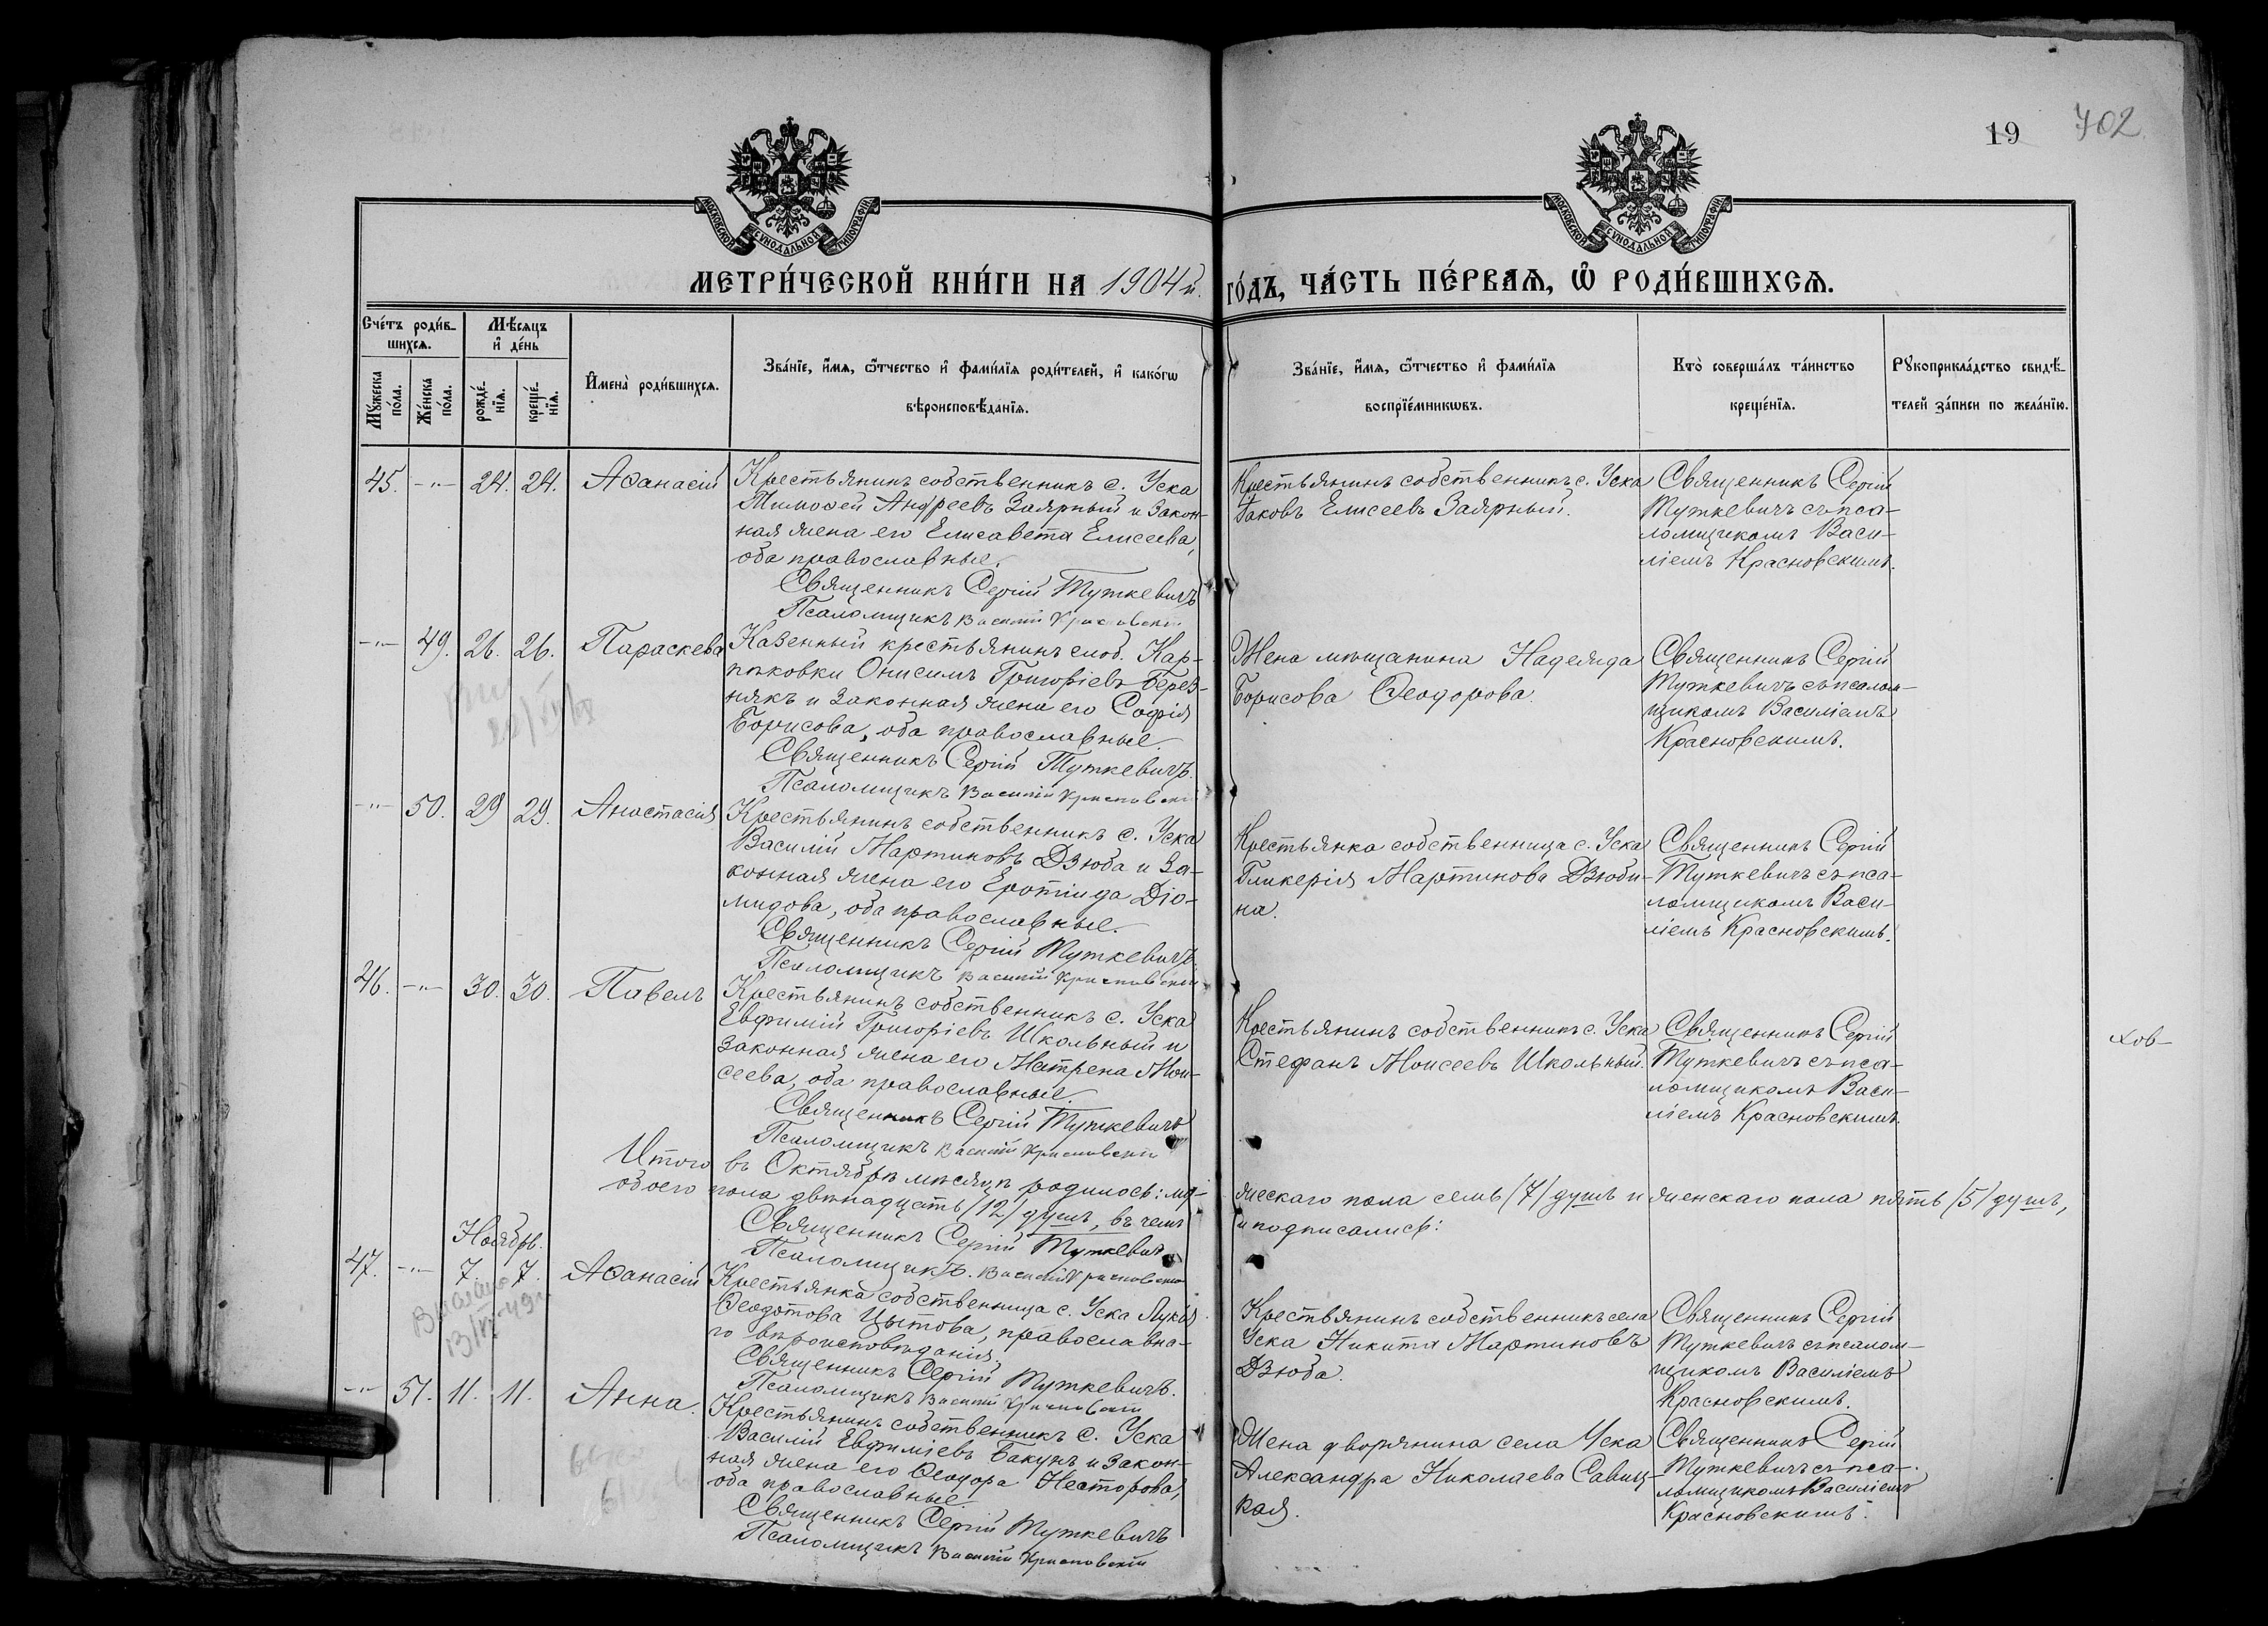 19 402
МОСКОВСКОЙ СѴНОДАЛЬНОЙ ТИПОГРАФІИ
МОСКОВСКОЙ СѴНОДАЛЬНОЙ ТИПОГРАФІИ
МЕТРИ́ЧЕСКОЙ КНИ́ГИ НА 1904й. ГО́ДЪ, ЧА́СТЬ ПЕ́РВАѦ, Ѡ҆ РОДИ́ВШИХСѦ.
Сче́тъ роди́в-
шихсѧ.
Мѣ́сѧцъ
и҆ де́нь
Мꙋ́жеска
по́ла.
Же́нска
по́ла.
рожде́-
нїѧ.
креще́-
нїѧ.
И҆мена̀ роди́вшихсѧ.
Зва́нїе, и҆́мѧ, ѻ҆́тчество и҆ фами́лїѧ роди́телей, и҆ како́гѡ
вѣроисповѣ́данїѧ.
Зва́нїе, и҆́мѧ, ѻ҆́тчество и҆ фами́лїѧ
воспрїе́мникѡвъ.
Кто̀ соверша́лъ та́инство
креще́нїѧ.
Рꙋкоприкла́дство свидѣ́-
телей за́писи по жела́нїю.
45. -"- 24. 24. Аѳанасій Крестьянинъ собственникъ с. Уска
Тимоѳей Андреевъ Заярный и закон-
ная жена его Елисавета Елисеева,
оба православные.
Священникъ Сергій Туткевичъ
Псаломщикъ Василій Красновскій
Крестьянинъ собственникъ с. Уска
Іаковъ Елисеевъ Заярный.
Священникъ Сергій
Туткевичъ съ пса-
ломщикомъ Васи-
ліемъ Красновскимъ.
-"- 49. 26. 26. Параскева Казенный крестьянинъ слоб. Кар-
пиковки Онисимъ Григоріевъ Берез-
някъ и законная жена его Софія
Борисова, оба православные.
Священникъ Сергій Туткевичъ.
Псаломщикъ Василій Красновскій
Жена мѣщанина Надежда
Борисова Ѳеодорова.
Священникъ Сергій
Туткевичъ съ псалом-
щикомъ Василіемъ
Красновскимъ.
-"- 50. 29 29. Анастасія Крестьянинъ собственникъ с. Уска
Василій Мартиновъ Дзюба и за-
конная жена его Еротіида Діо-
мидова, оба православные.
Священникъ Сергій Туткевичъ.
Псаломщикъ Василій Красновскій
Крестьянка собственница с. Уска
Гликерія Мартинова Дзюби-
на.
Священникъ Сергій
Туткевичъ съ пса-
ломщикомъ Васи-
ліемъ Красновскимъ.
46. -"- 30. 30. Павелъ Крестьянинъ собственникъ с. Уска
Евфимій Григоріевъ Школьный и
законная жена его Матрена Мои-
сеева, оба православные.
Священникъ Сергій Туткевичъ
Псаломщикъ Василій Красновскій
Крестьянинъ собственникъ с. Уска
Стефанъ Моисеевъ Школьный.
Священникъ Сергій
Туткевичъ съ пса-
ломщикомъ Васи-
ліемъ Красновскимъ.
Итого въ Октябрѣ мѣсяцѣ родилось: му-
жескаго пола семь /7/ душъ и женскаго пола пять /5/ душъ,
обоего пола двѣнадцать /12/ душъ, въ чемъ
и подписались:
Священникъ Сергій Туткевичъ
Псаломщикъ. Василій Красновскій
Ноябрь.
47. -"- 7. 7. Аѳанасій Крестьянка собственница с. Уска Лукія
Ѳеодотова Цытова, православна-
го вѣроисповѣданія
Священникъ Сергій Туткевичъ.
Псаломщикъ Василій Красновскій
Крестьянинъ собственникъ села
Уска Никита Мартиновъ
Дзюба.
Священникъ Сергій
Туткевичъ съ псалом-
щикомъ Василіемъ
Красновскимъ.
-"- 51. 11. 11. Анна. Крестьянинъ собственникъ с. Уска
Василій Евфиміевъ Бакунъ и закон-
ная жена его Ѳеодора Несторова,
оба православные.
Священникъ Сергій Туткевичъ
Псаломщикъ Василій Красновскій
Жена дворянина села Уска
Александра Николаева Савиц-
кая.
Священникъ Сергій
Туткевичъ съ пса-
ломщикомъ Василіемъ
Красновскимъ.